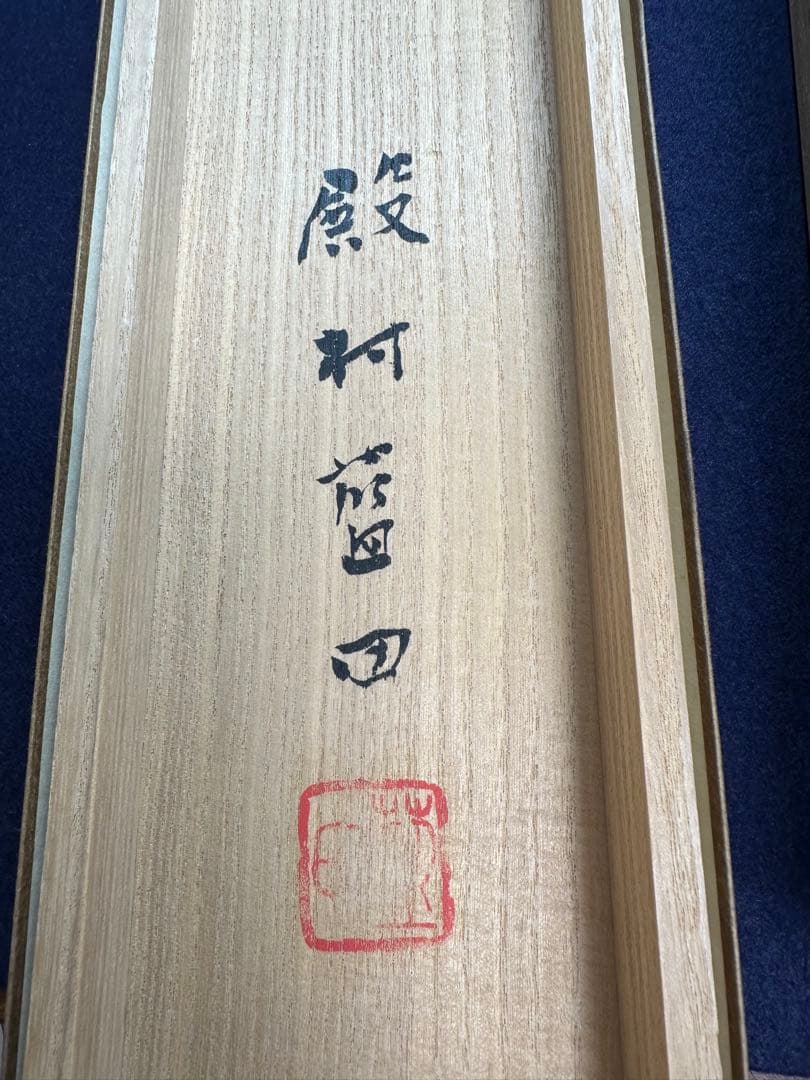 殿村藍田